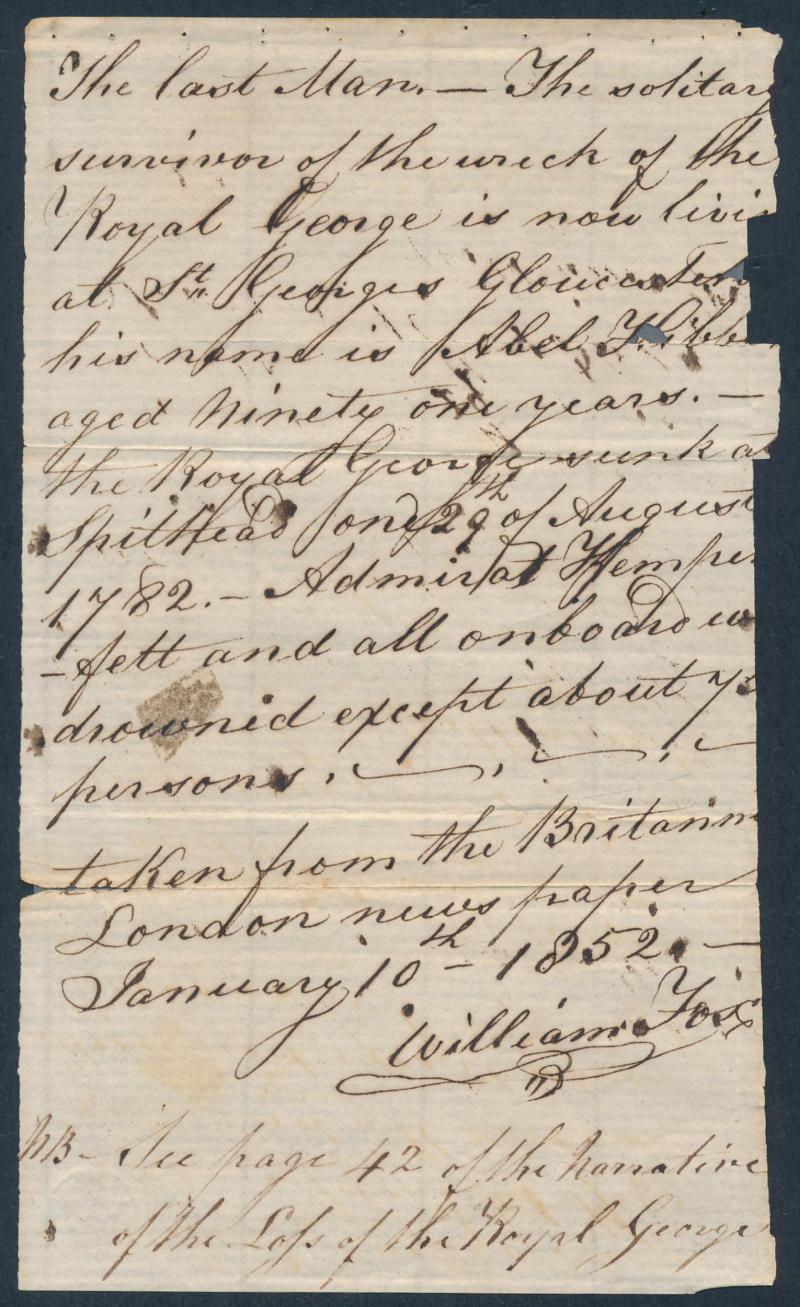 The last Man. — The solitary
survivor of the wreck of the
Royal George is now livi
at St. Georges Gloucester
his name is Abel Hibb
aged Ninety one years. —
the Royal George sunk at
Spithead on 29th of August
1782. — Admiral Kempen
-felt and all onboard we
drowned except about 7
persons.
taken from the Britann
London news paper
January 10th - 1852. —
William Fox
NB - See page 42 of the Narrative
of the Loss of the Royal George